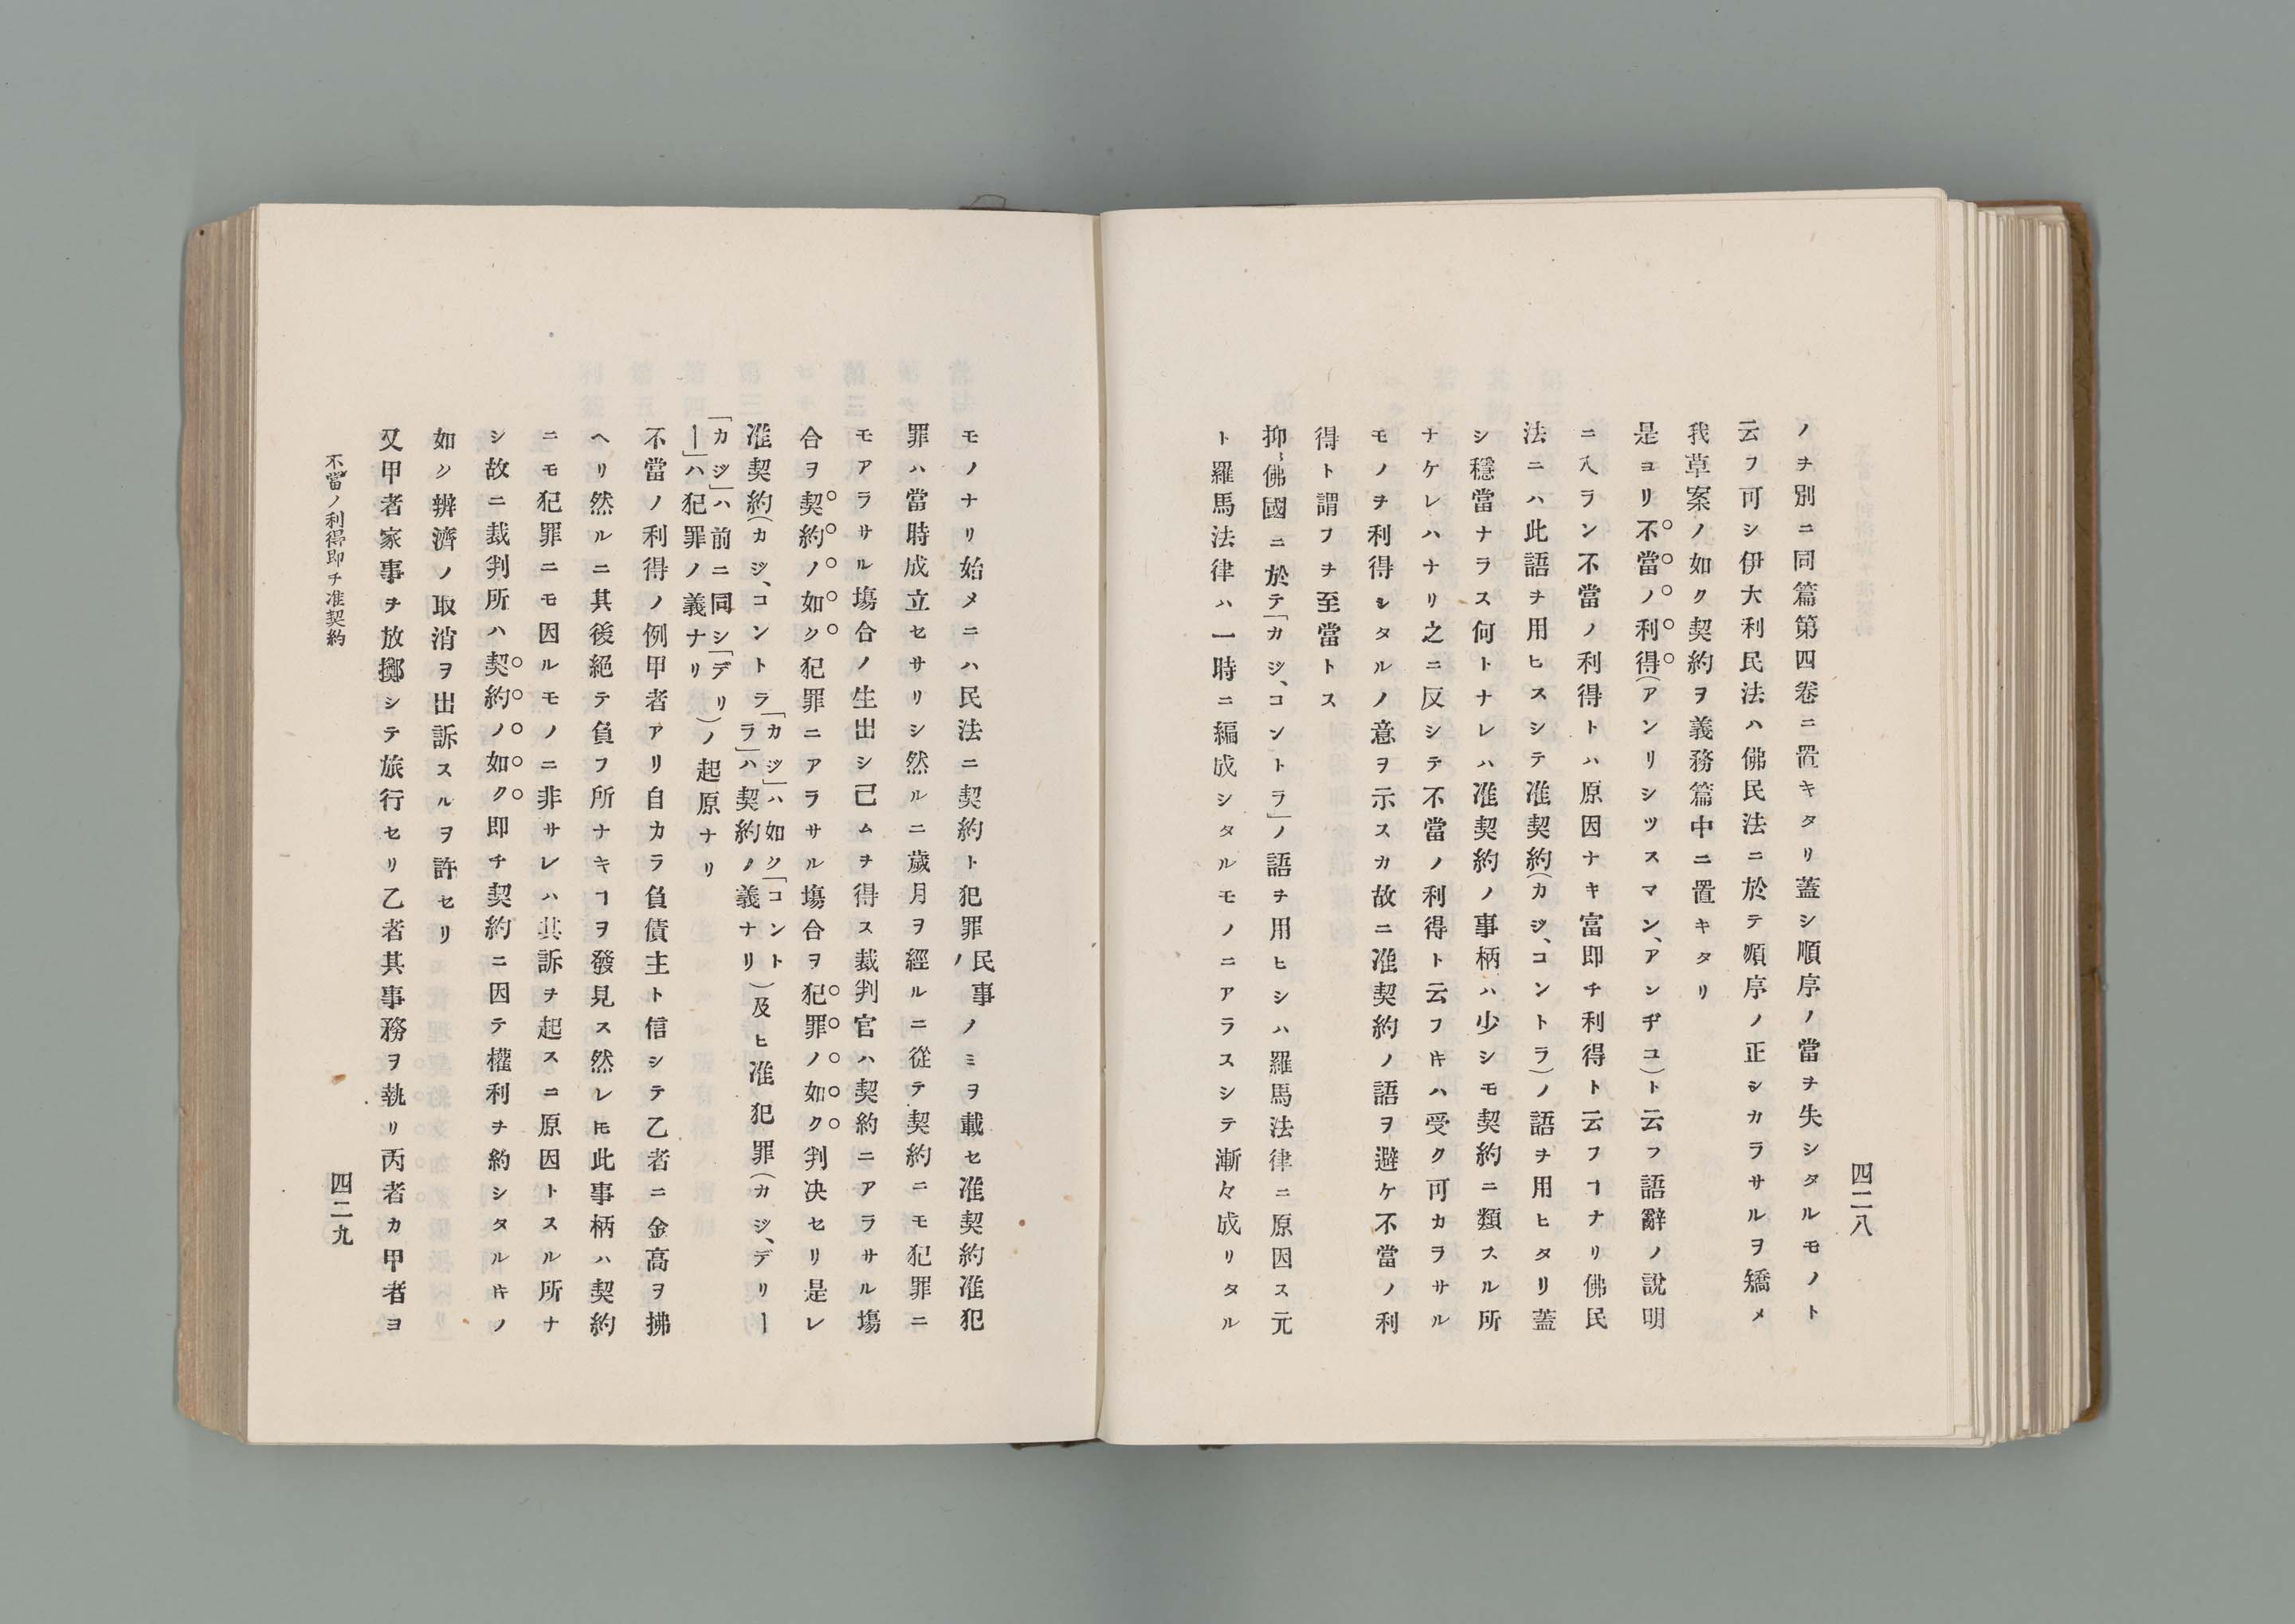 四二八
ノヲ別ニ同篇第四卷ニ置キタリ蓋シ順序ノ當ヲ失シタルモノト
云フ可シ伊大利民法ハ佛民法ニ於テ順序ノ正シカラサルヲ矯メ
我草案ノ如ク契約ヲ義務篇中ニ置キタリ
是ヨリ不當ノ利得(アンリシツスマン、アンヂユ)ト云フ語辭ノ說明
ニ入ラン不當ノ利得トハ原因ナキ富即チ利得ト云フヿナリ佛民
法ニハ此語ヲ用ヒスシテ准契約(カジ、コントラ)ノ語ヲ用ヒタリ蓋
シ穩當ナラス何トナレハ准契約ノ事柄ハ少シモ契約ニ類スル所
ナケレハナリ之ニ反シテ不當ノ利得ト云フキハ受ク可カラサル
モノヲ利得シタルノ意ヲ示スカ故ニ准契約ノ語ヲ避ケ不當ノ利
得ト謂フヲ至當トス
抑〻佛國ニ於テ「カジ、コントラ」ノ語ヲ用ヒシハ羅馬法律ニ原因ス元
ト羅馬法律ハ一時ニ編成シタルモノニアラスシテ漸々成リタル
モノナリ始メニハ民法ニ契約ト犯罪ノ民事ノミヲ載セ准契約准犯
罪ハ當時成立セサリシ然ルニ歲月ヲ經ルニ從テ契約ニモ犯罪ニ
モアラサル塲合ノ生出シ已ムヲ得ス裁判官ハ契約ニアラサル塲
合ヲ契約ノ如ク犯罪ニアラサル塲合ヲ犯罪ノ如ク判决セリ是レ
准契約(カジ、コントラ「カジ」ハ如ク「コントラ」ハ契約ノ義ナリ)及ヒ准犯罪(カジ、デリー
「カジ」ハ前ニ同シ「デリー」ハ犯罪ノ義ナリ)ノ起原ナリ
不當ノ利得ノ例甲者アリ自カラ負債主ト信シテ乙者ニ金高ヲ拂
ヘリ然ルニ其後絕テ負フ所ナキヿヲ發見ス然レ𪜈此事柄ハ契約
ニモ犯罪ニモ因ルモノニ非サレハ其訴ヲ起スニ原因トスル所ナ
シ故ニ裁判所ハ契約ノ如ク即チ契約ニ因テ權利ヲ約シタルキノ
如ク辨濟ノ取消ヲ出訴スルヲ許セリ
又甲者家事ヲ放擲シテ旅行セリ乙者其事務ヲ執リ丙者カ甲者ヨ
不當ノ利得即チ准契約
四二九